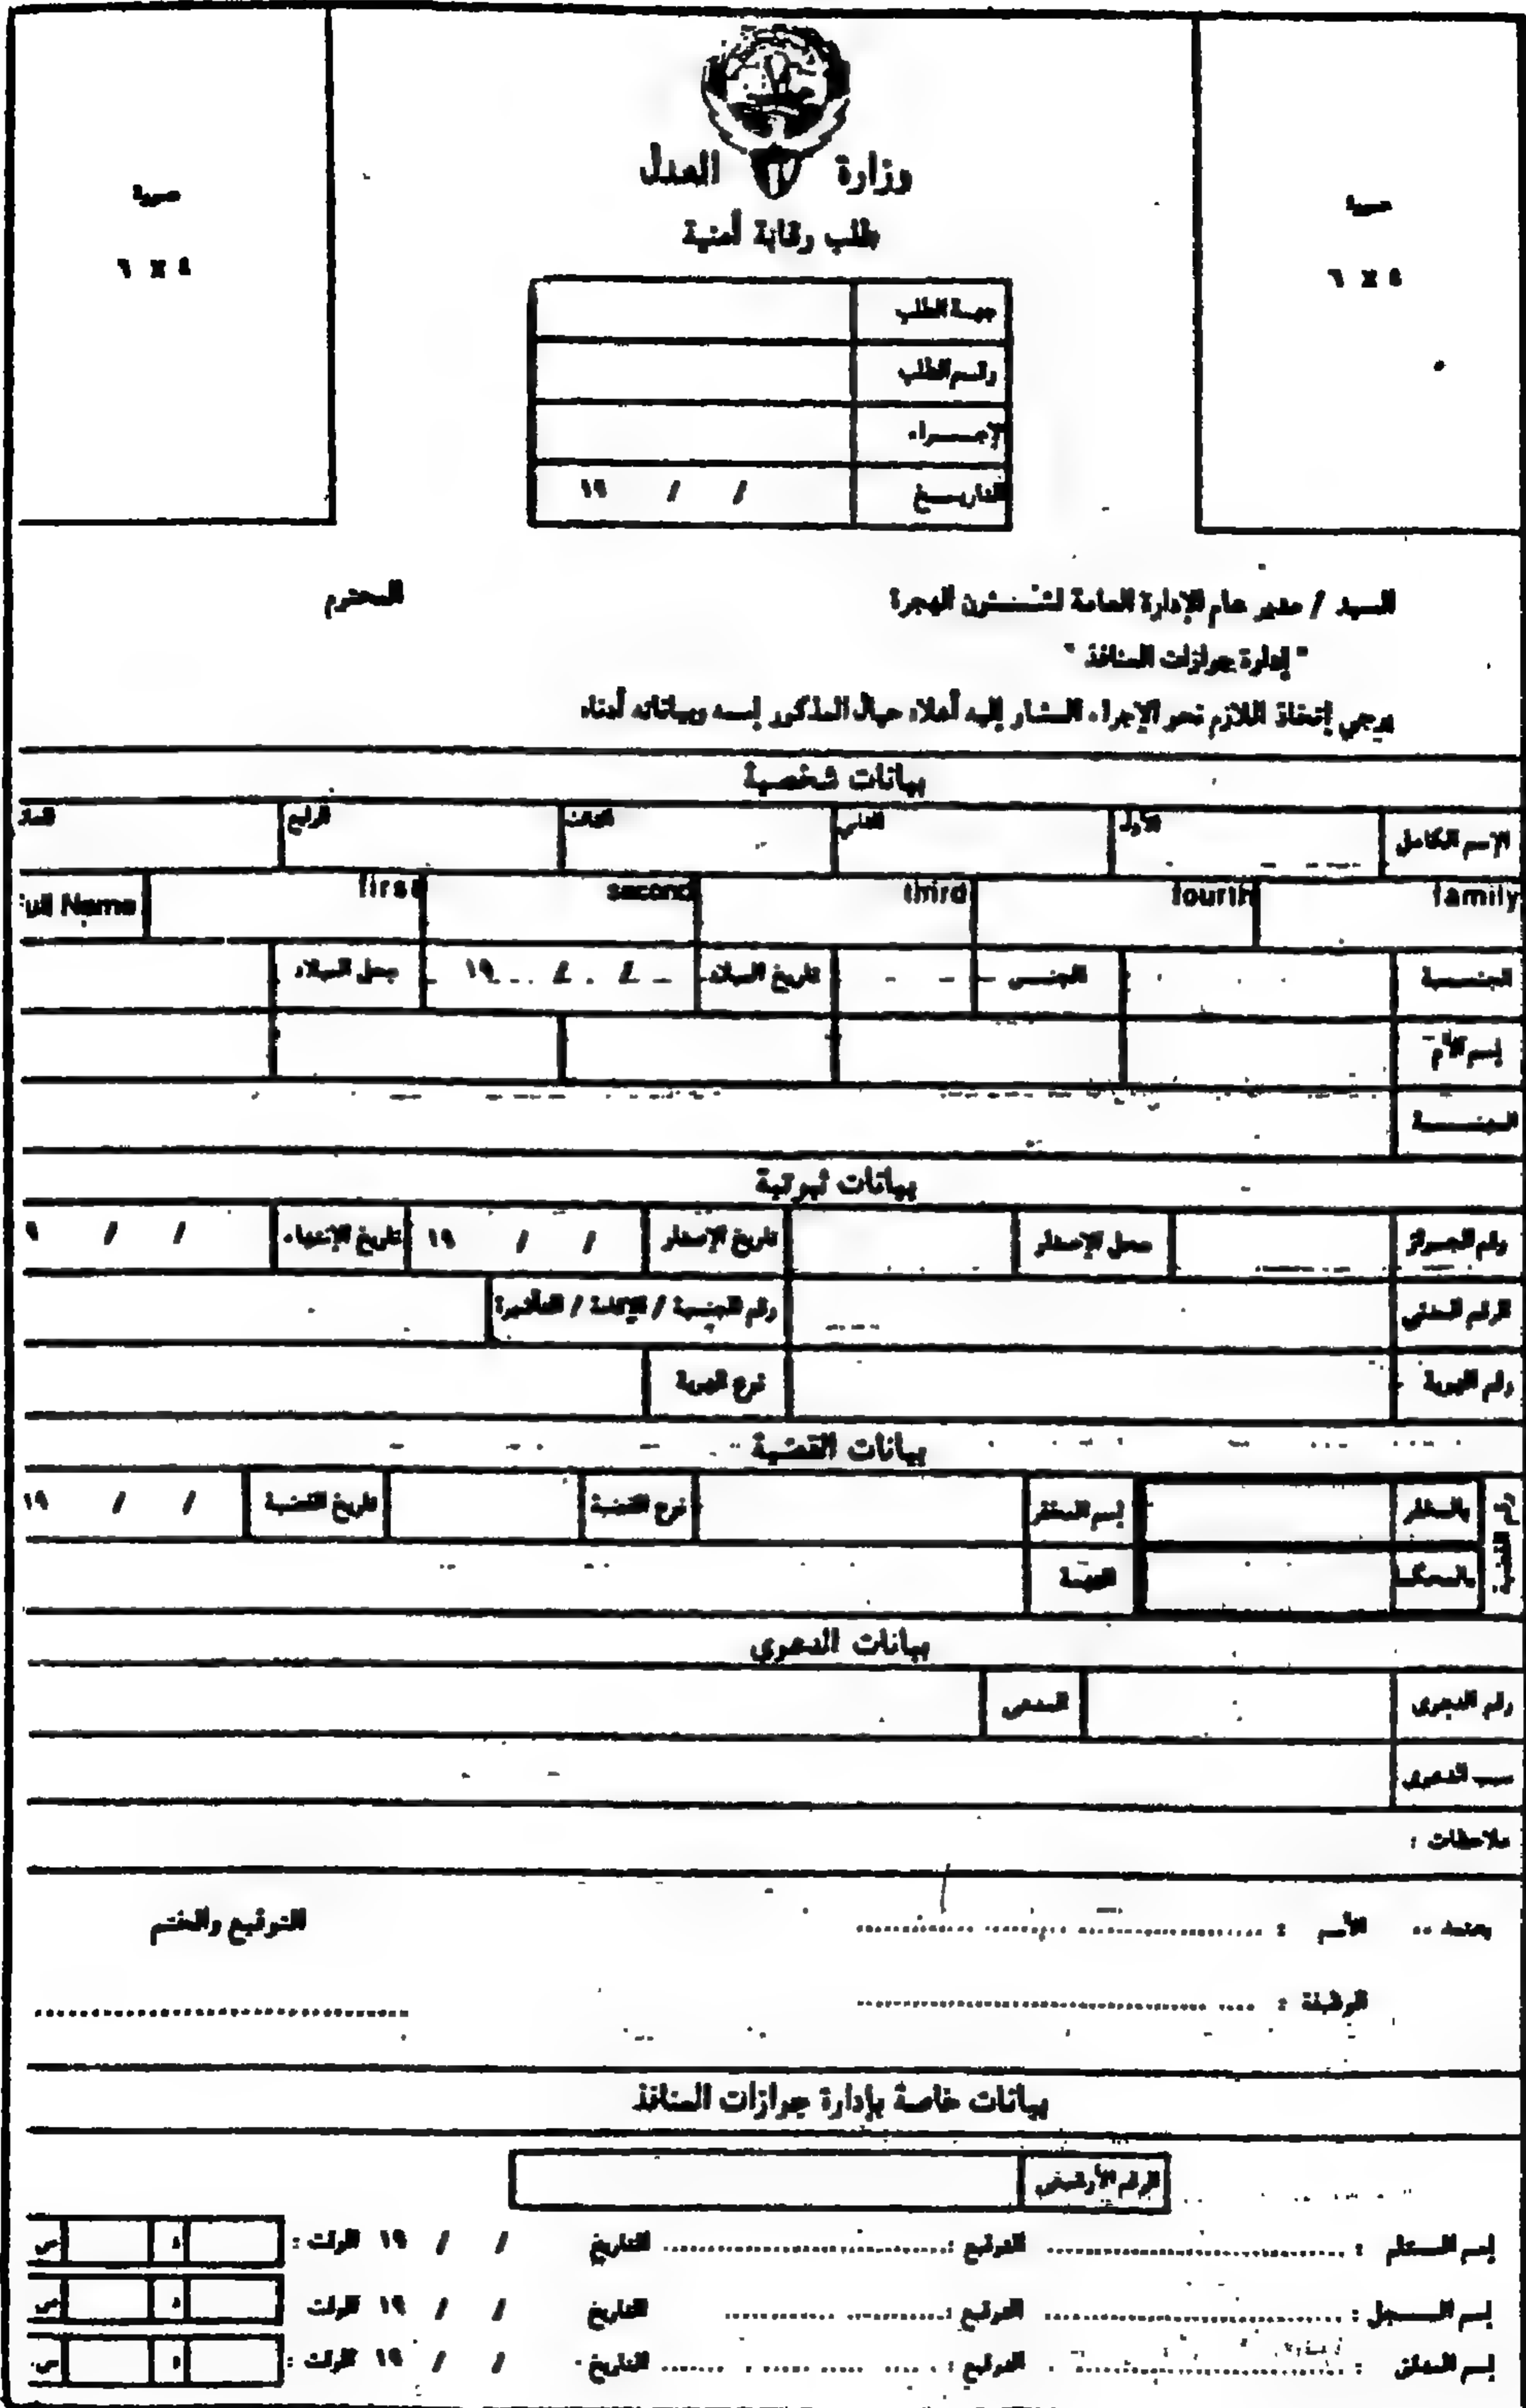 وزارة العدل
طلب رقابة أمنية
صورة
٤ x ٦
صورة
٤ x ٦
جهة الطلب
رقم الطلب
الإجراء
التاريخ / / ١٩
السيد / مدير عام الإدارة العامة لشئون الهجرة المحترم
" إدارة جوازات المنافذ "
يرجي إتخاذ اللازم نحو الإجراء المشار إليه أعلاه حيال المذكور إسمه وبياناته أدناه
بيانات شخصية
الإسم الكامل الأول الثاني الثالث الرابع
Name first second third fourth family
الجنسية الجنس تاريخ الميلاد / / ١٩ محل الميلاد
إسم الأم
الجنسية
بيانات ثبوتية
رقم الجواز محل الإصدار تاريخ الإصدار / / ١٩ تاريخ الإنتهاء / / ٩
الرقم المدني رقم الجنسية / الإقامة / التأشيرة
رقم الهوية نوع الهوية
بيانات القضية
رقم القضية بالمخفر إسم المخفر نوع القضية تاريخ القضية / / ١٩
بالمحكمة التهمة
بيانات الدعوى
رقم الدعوى المدعي
سبب الدعوى
ملاحظات :
يعتمد .. الأسم : التوقيع والختم
الوظيفة :
بيانات خاصة بإدارة جوازات المنافذ
الرقم الأرشيفي
إسم المستلم : التوقيع : التاريخ / / ١٩ الوقت : د س
إسم المسجل : التوقيع : التاريخ / / ١٩ الوقت د س
إسم المدقق : التوقيع : التاريخ / / ١٩ الوقت : د س